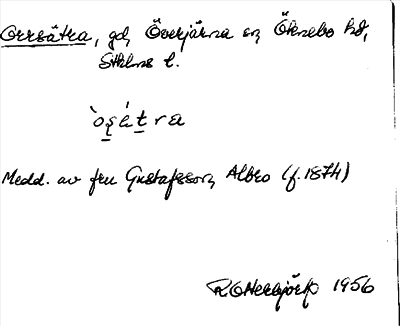 Orrsätra, gd, Överjärna sn, Öknebo hd,
Sthlms l.
`ɷʂét̠ra
Medd. av fru Gustafsson, Albro (f. 1874)
1956